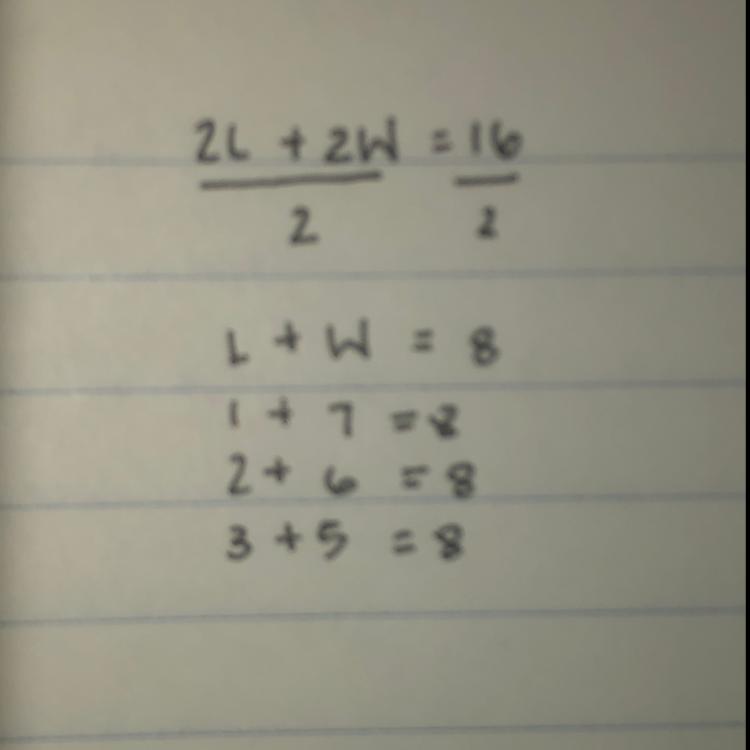 2L + 2W = 16
2 2
L + W = 8
1 + 7 = 8
2 + 6 = 8
3 + 5 = 8